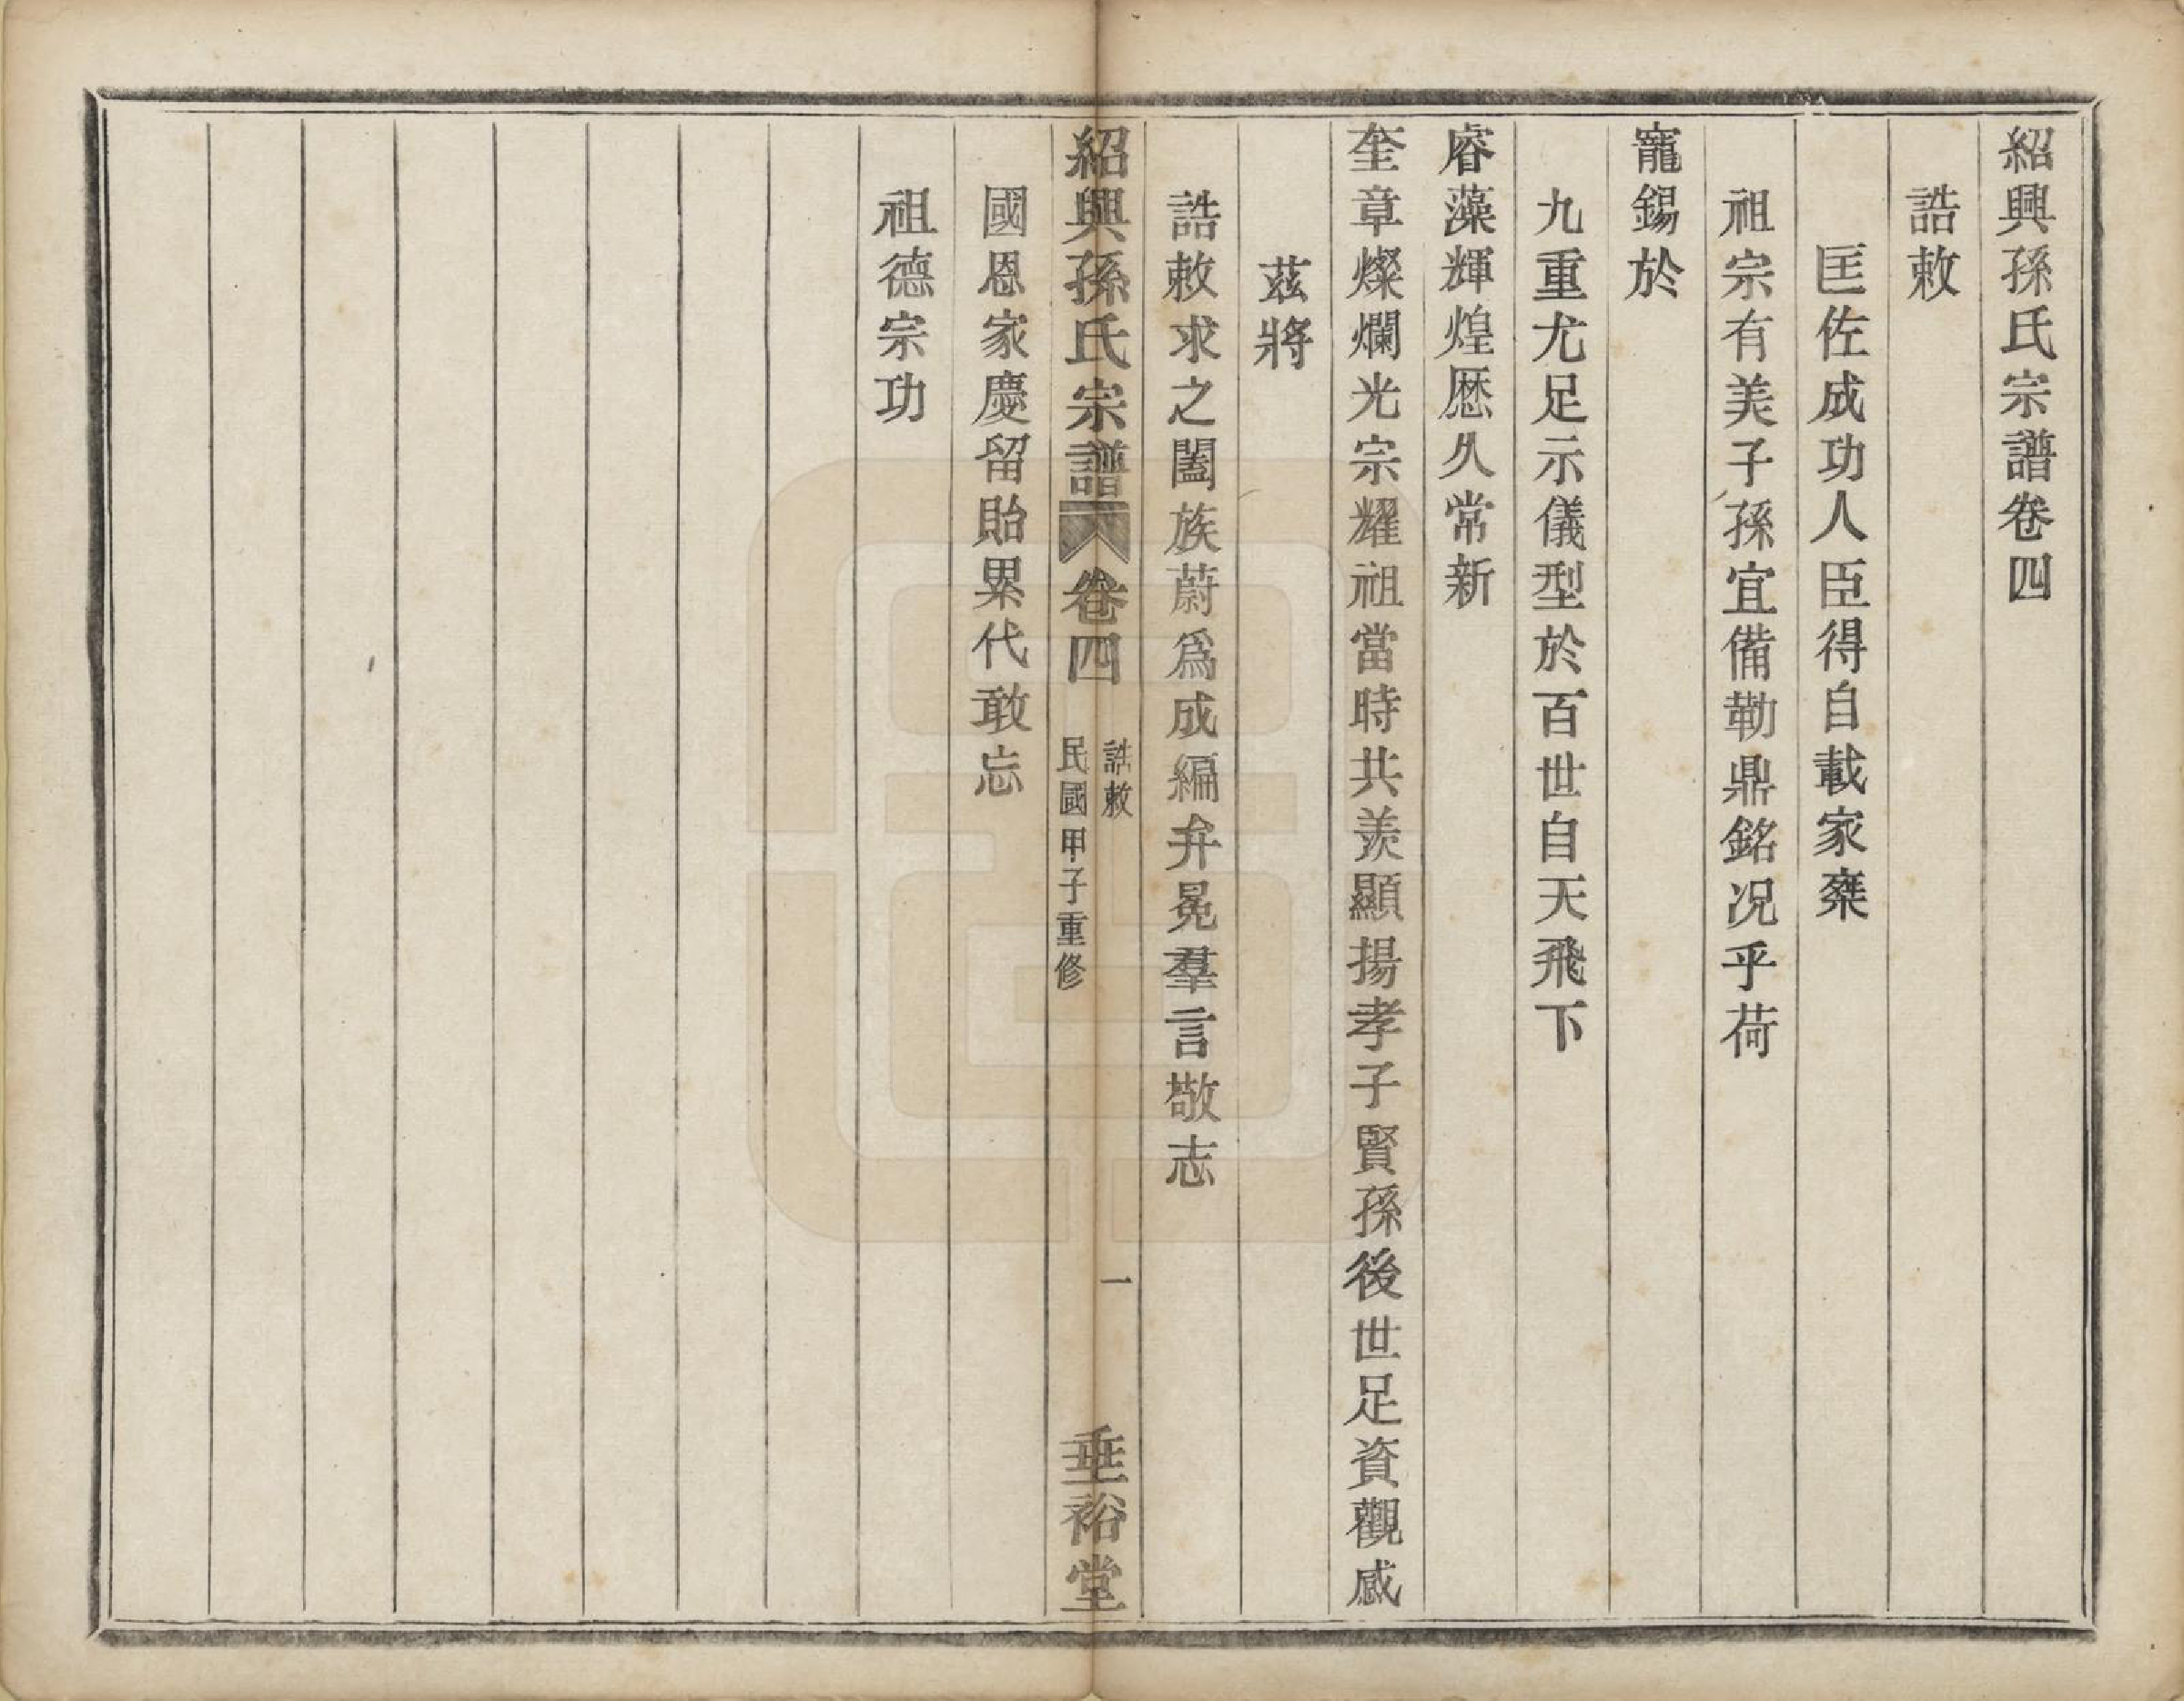 紹興孫氏宗譜卷四
誥敕
匡佐成功人臣得自載家乘
祖宗有美子孫宜備勒鼎銘况乎荷
寵錫於
九重尤足示儀型於百世自天飛下
睿藻輝煌歷久常新
奎章燦爛光宗耀祖當時共羨顯揚孝子賢孫後世足資觀感
茲將
誥敕求之闔族蔚爲成編弁冕羣言敬志
紹興孫氏宗譜
卷四
誥敕
民國甲子重修
一
垂裕堂
國恩家慶留貽累代敢忘
祖德宗功